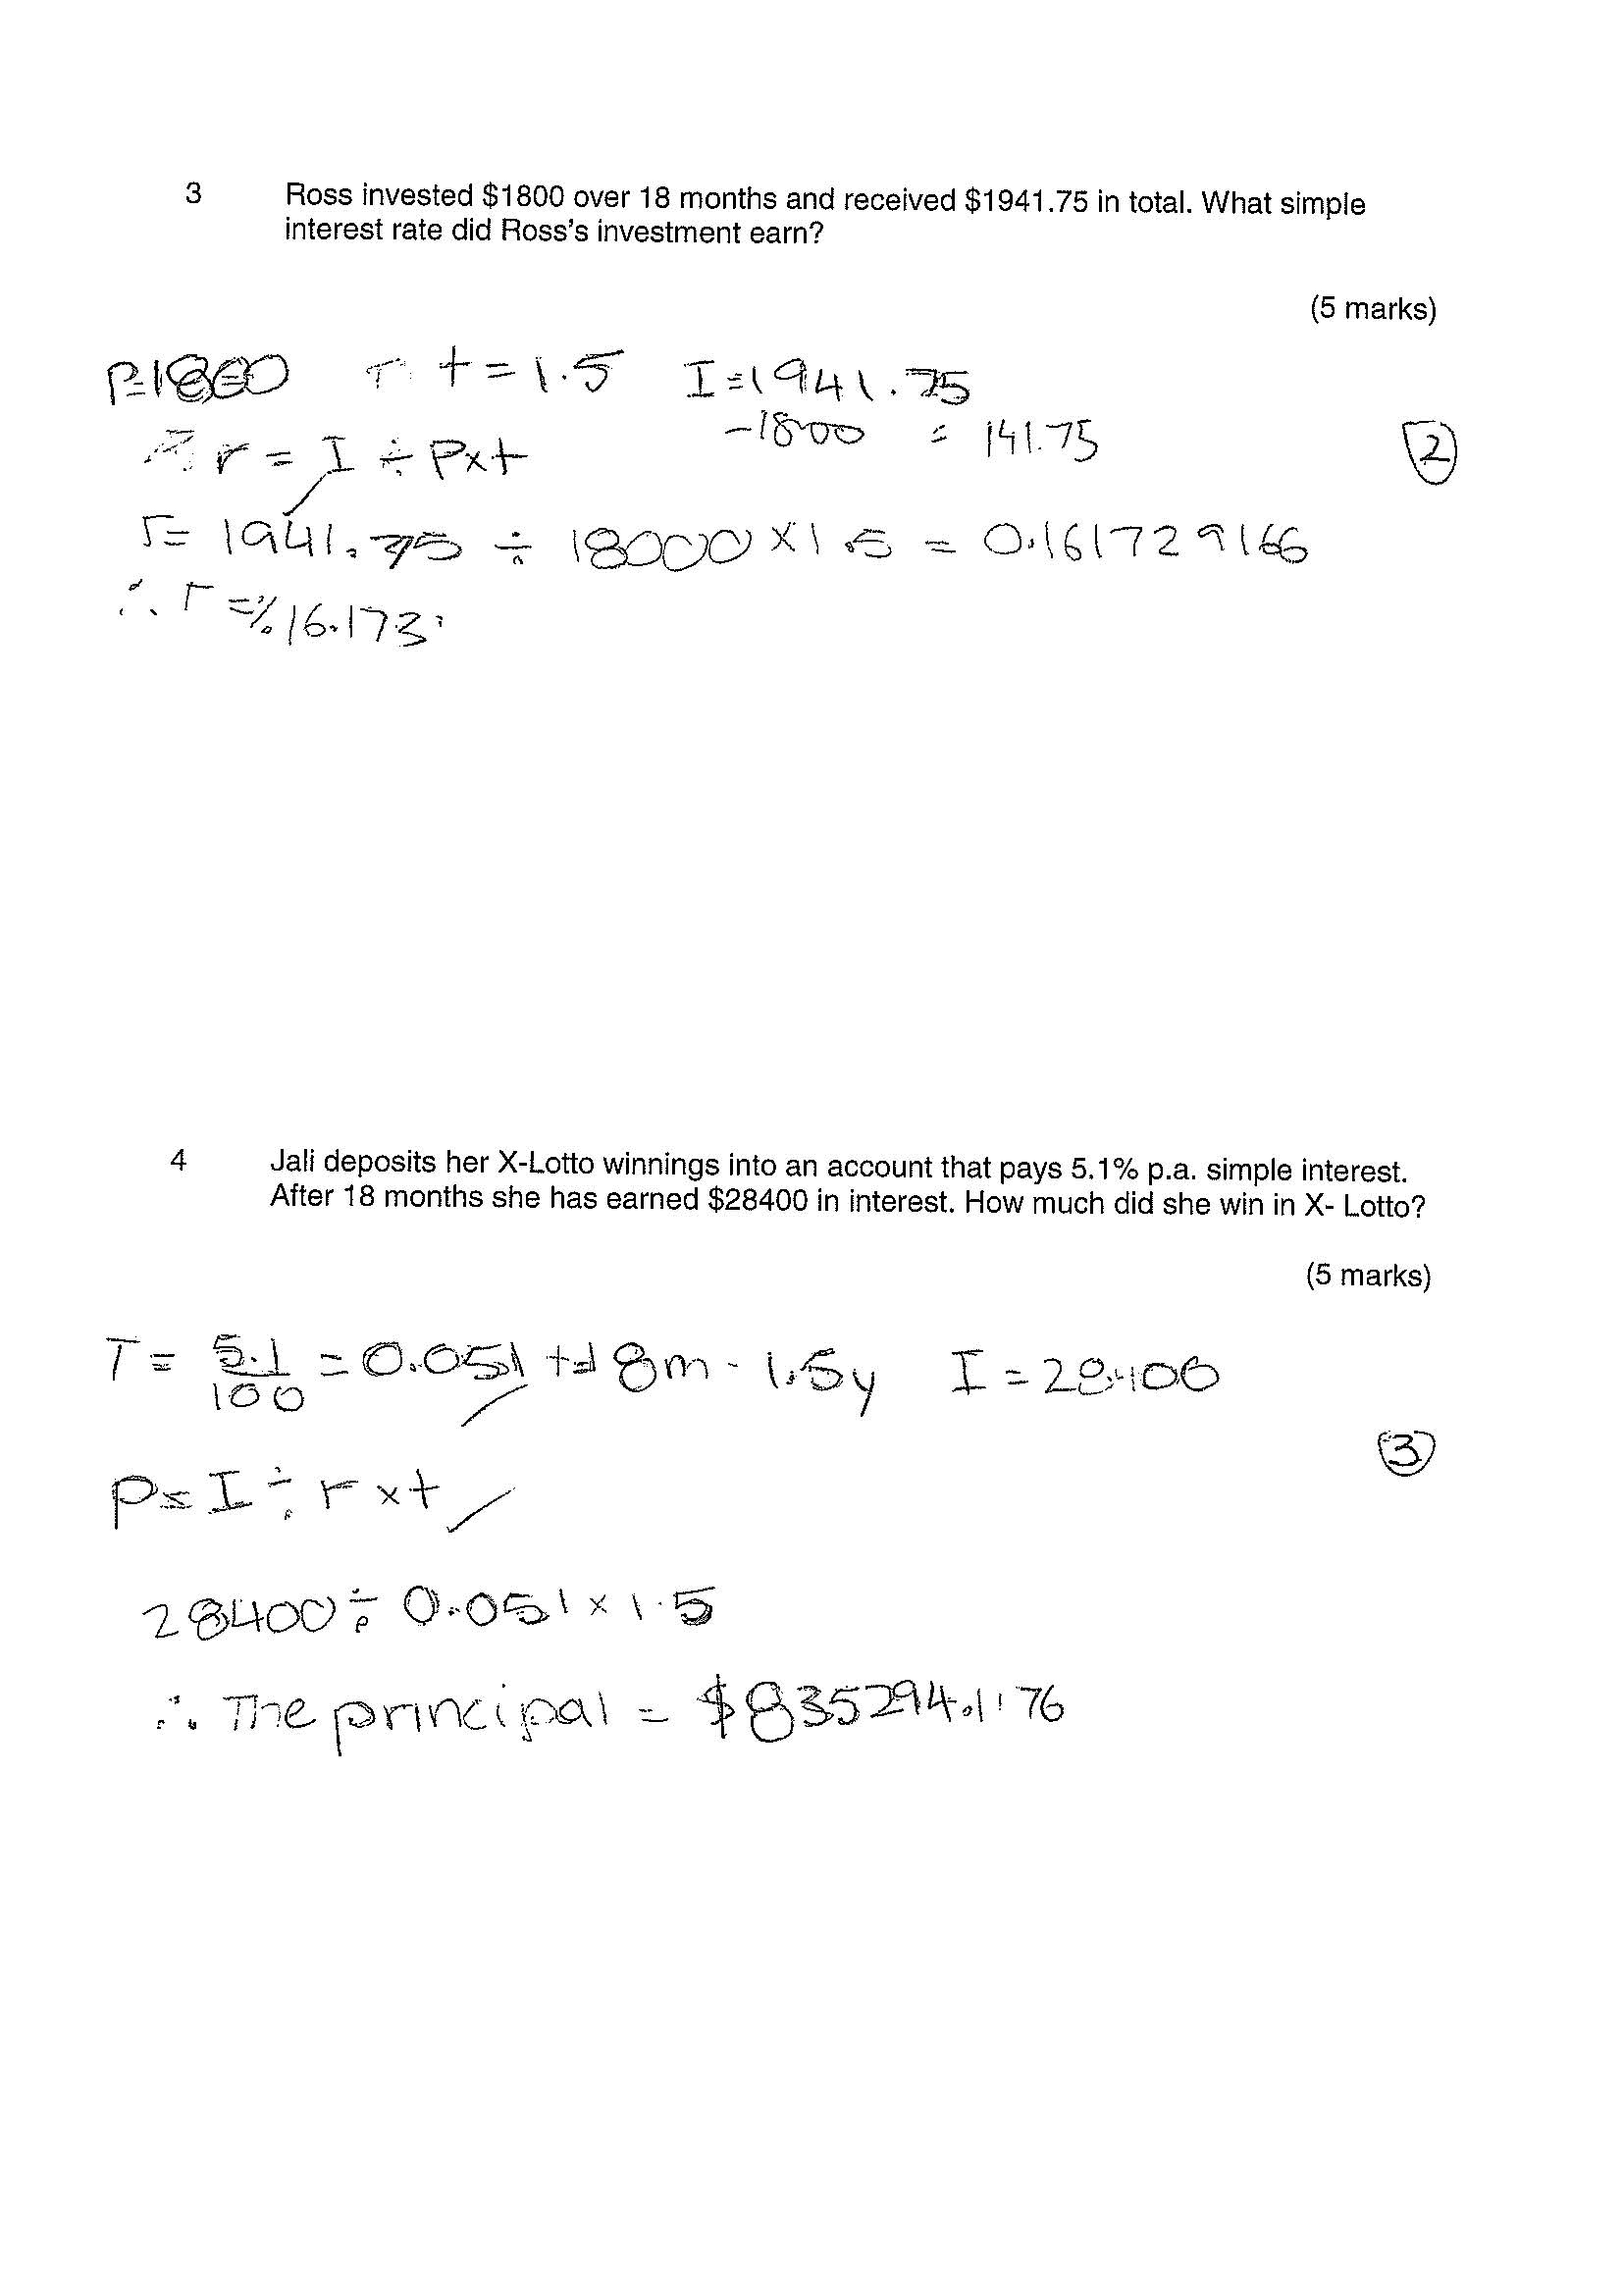 3 Ross invested $1800 over 18 months and received $1941.75 in total. What simple
interest rate did Ross's investment earn?
(5 marks)
P=1800 t = 1.5 I=1941.75
-1800 = 141.75
r = I ÷ P×t
2
r= 1941.75 ÷ 18000 × 1.5 = 0.161729166
∴ r =%16.173
4 Jali deposits her X-Lotto winnings into an account that pays 5.1% p.a. simple interest.
After 18 months she has earned $28400 in interest. How much did she win in X- Lotto?
(5 marks)
r = 5.1/100 = 0.051 t=18m - 1.5y I = 28400
3
P= I ÷ r × t
28400 ÷ 0.051 × 1.5
∴ The principal = $835294.1176